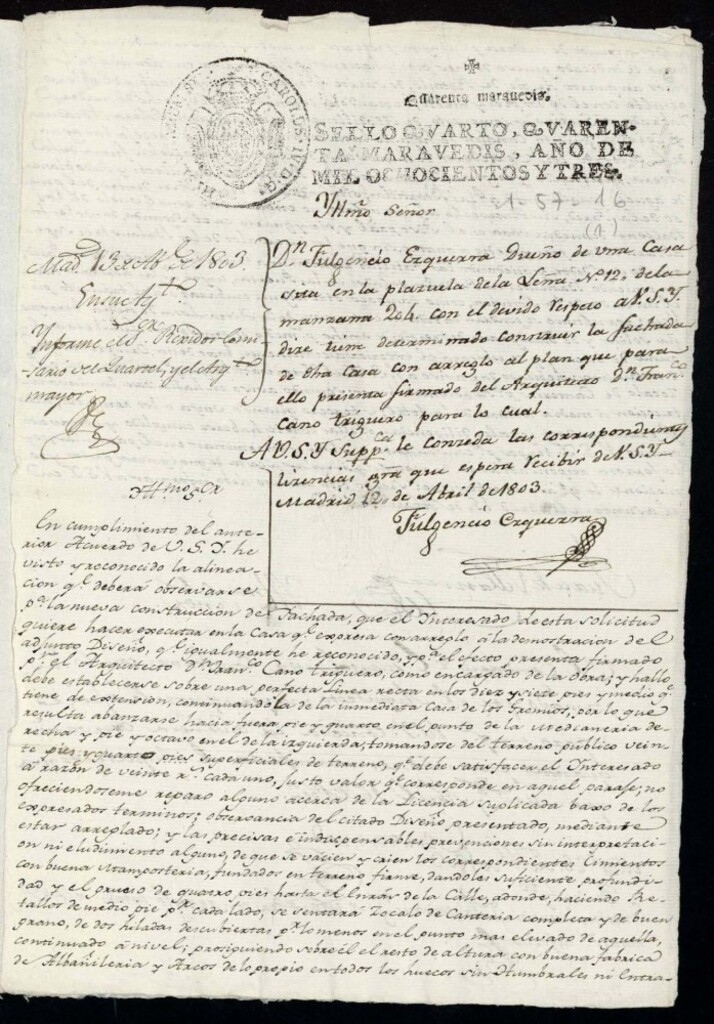 Quarenta maravedis.
SELLO QVARTO, QVAREN-
TA MARAVEDIS, AÑO DE
MIL OCHOCIENTOS Y TRES.
CAROLUS IV D G
1-57-16
(1)
Yttmo Señor
Dn Fulgencio Ezquerra Dueño de una Casa
sita en la plazuela de la Leña No 12 de la
manzana 204. con el devido respeto a V.S.Y.
dice tiene determinado construir la fachada
de dha Casa con arreglo al plan que para
ello presenta firmado del Arquitecto Dn Franco
Cano triguero para lo cual.
A V.S.Y Suppca le conzeda las correspondientes
licencias gra que espera recibir de V.S.Y.
Madrid 12 de Abril de 1803.
Fulgencio Ezquerra
Madd 13 de Abl de 1803.
En su Aytto
Informe el Sr Rexidor Comi-
sario del Quartel, y el Arqto
mayor
Yttmo Sor
En cumplimiento del ante-
rior Acuerdo de V.S.Y. he
visto y reconocido la alinea-
cion qe deberá observarse
pa la nueva construccion de Fachada, que el Interesado de esta solicitud
quiere hacer executar en la Casa qe expresa con arreglo á la demostracion del
adjunto Diseño, qe igualmente he reconocido, y pa el efecto presenta firmado
pr el Arquitecto Dn Franco Cano triguero, como encargado de la obra; y hallo
debe establecerse sobre una perfecta Linea recta en los diez y siete pies y medio qe
tiene de extension, continuando la de la inmediata Casa de los Gremios, por lo que
resulta abanzarse hacia fuera pie y quarto en el punto de la Medianeria de-
recha y pie y octavo en el de la izquierda; tomandose del terreno publico vein-
te pies y quarto pies superficiales de terreno, qe debe satisfacer el Interesado
á razon de veinte rs cada uno, justo valor qe corresponde en aquel parage; no
ofreciendoseme reparo alguno acerca de la Licencia suplicada baxo de los
expresados terminos; observancia del citado Diseño presentado, mediante
estar arreglado; y las precisas é indispensables prevenciones sin interpretaci-
on ni eludimiento alguno, de que se vacien y crien los correspondientes Cimientos
con buena Mamposteria, fundados en terreno firme, dandoles suficiente profundi-
dad y el grueso de quatro pies hasta el Enrás de la Calle, adonde, haciendo Re-
tallos de medio pie pr cada lado, se sentará Zocalo de Canteria completa y de buen
grano, de dos hiladas descubiertas pr lo menos en el punto mas elevado de aquella,
continuado á nivel; prosiguiendo sobre él el resto de altura con buena fabrica
de Albañileria y Arcos de lo propio en todos los huecos sin Humbrales ni Entra-